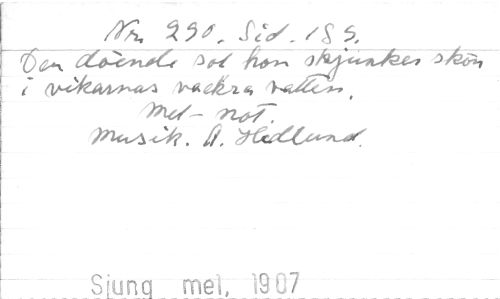 Nr 290. Sid. 189.
Den döende sol hon sjunker skön
i vikarnas vackra vatten.
Mel- not.
Musik. A. Hedlund.
Sjung mel, 1907